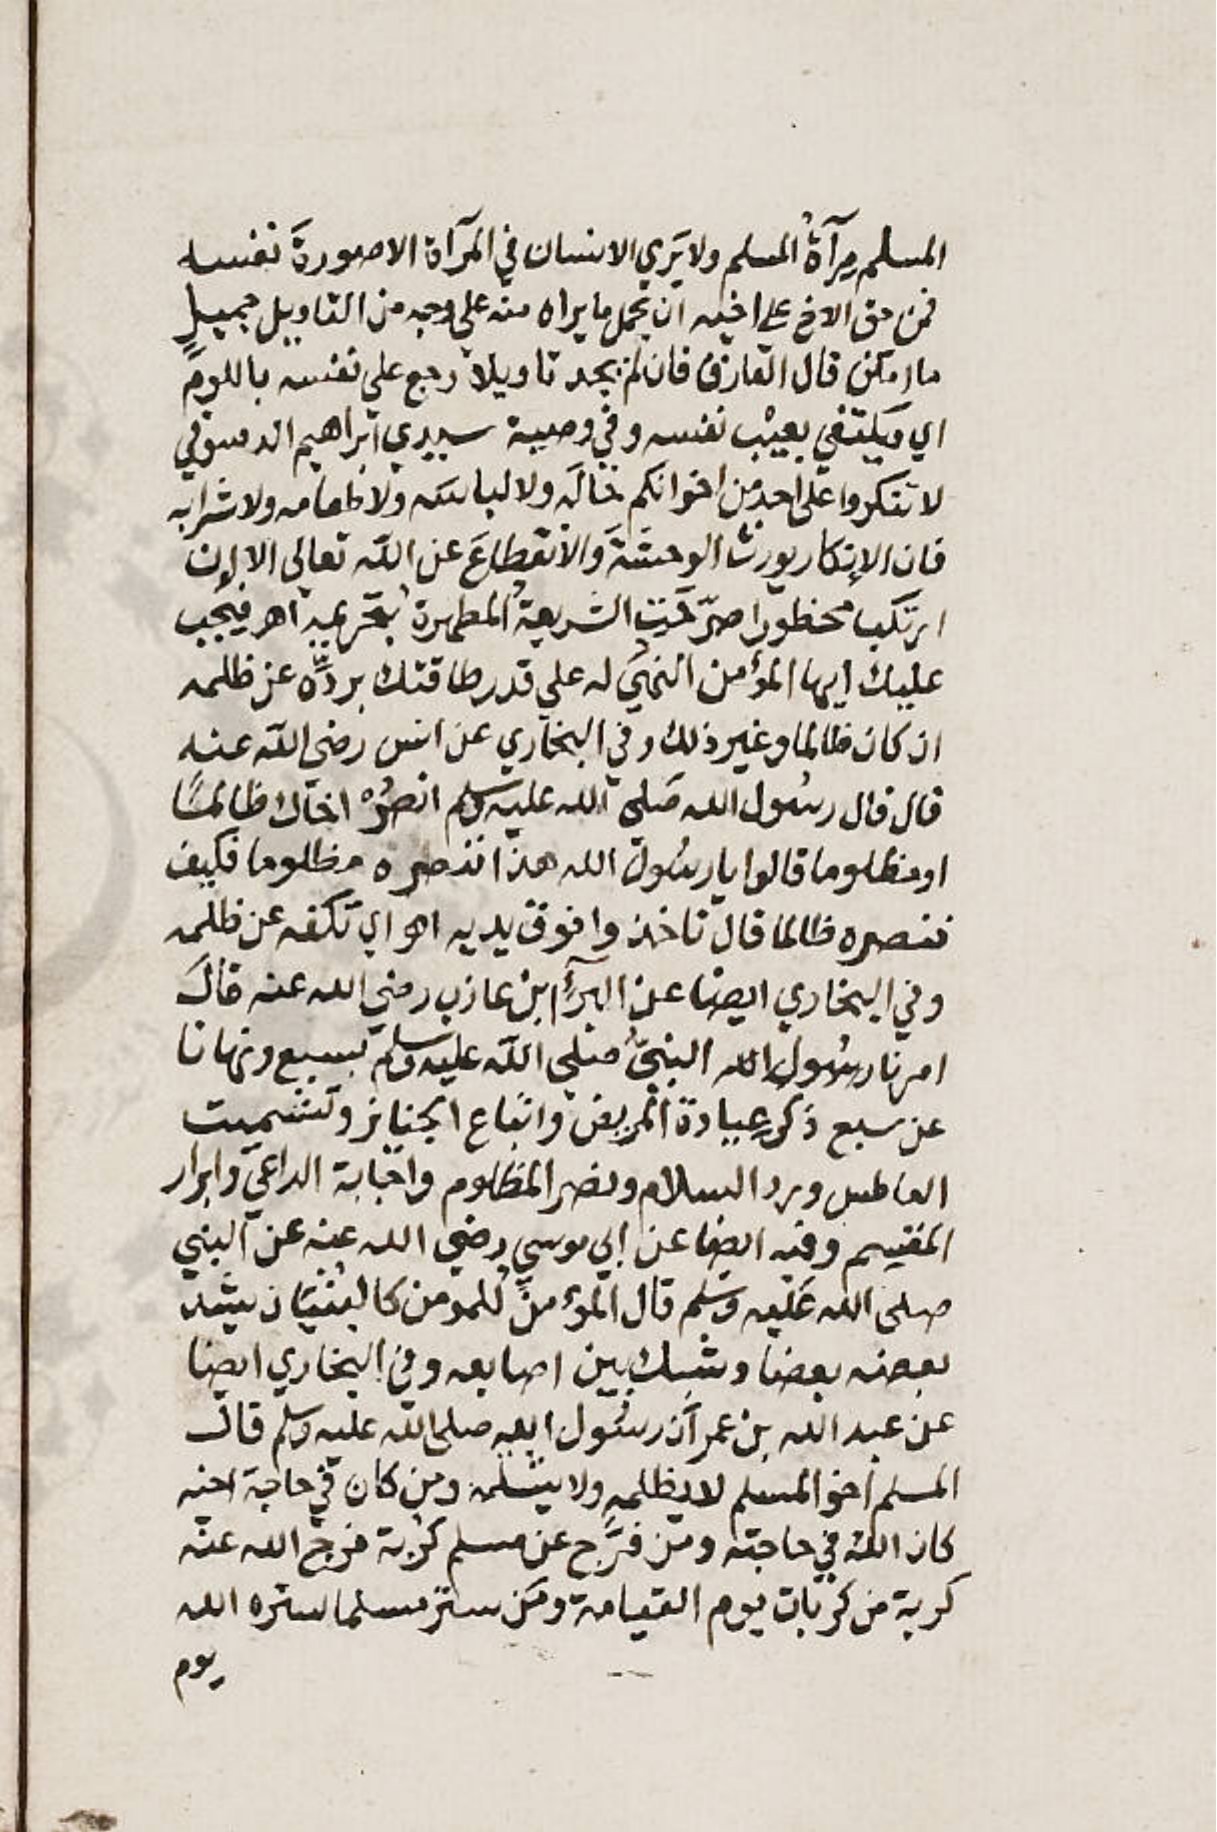 المسلم مِرآةُ المسلم ولا يَرَي الانسان في المرآة الا صورةَ نفسه
فمن حق الاخ علي اخيه ان يحمل ما يراه منه علي وجه من التاويل جميلٍ
ما امكن قال العارف فان لم يجد تاويلاً رجع علي نفسه باللومِ
اي ويكتفي بعيْب نفسه وفي وصية سيدي ابراهيم الدسوقي
لا تنكروا علي احد من اخوانكم حالَه ولا لباسَه ولا طعامه ولا شرابه
فان الانكار يورث الوحشةَ والانقطاعَ عن الله تعالي الا ان
ارتكب محظورا صرّحت الشريعةُ المطهرة بتحريمه اهـ فيجب
عليك ايها المؤمن النهيُ له علي قدر طاقتك بردِّه عن ظلمه
ان كان ظالما وغير ذلك وفي البخاري عن انس رضي الله عنه
قال قال رسُول الله صَلي الله عليه وسلم انصُرْ اخاك ظالمًا
او مظلوما قالوا يا رسُول الله هذا ننصره مظلوما فكيف
ننصره ظالما قال تاخذ وا فوق يديه اهو اي تكفه عن ظلمه
وفي البخاري ايضا عن البرآءِ ابن عازب رضي الله عنه قالَ
امرنا رسُول الله النبيُّ صلي الله عليه وسلم بسبع ونهانا
عن سبع ذكر عِيادة المريض واتباع الجنايز وتشميت
العاطس ورد السلام ونصر المظلوم واجابة الداعي وابرار
المقسم وفيه ايضا عن ابي موسي رضي الله عنه عن النبي
صلى الله عَليه وسَلم قال المؤمنُ للمومن كالبُنْيَان يشُد
بعضه بعضا وشبك بين اصابعه وفي البخاري ايضا
عن عبد الله بن عمر اَن رسُول الله صلى الله عليه وسلم قال
المسلم اخو المسلم لا يظلمه ولا يُسْلمه ومن كان في حاجة اخيه
كان اللهُ في حاجته ومَن فرَّج عن مسلم كُربة فرج الله عنه
كربة من كربات يوم القيامة ومَن ستر مسلما ستره الله
يوم